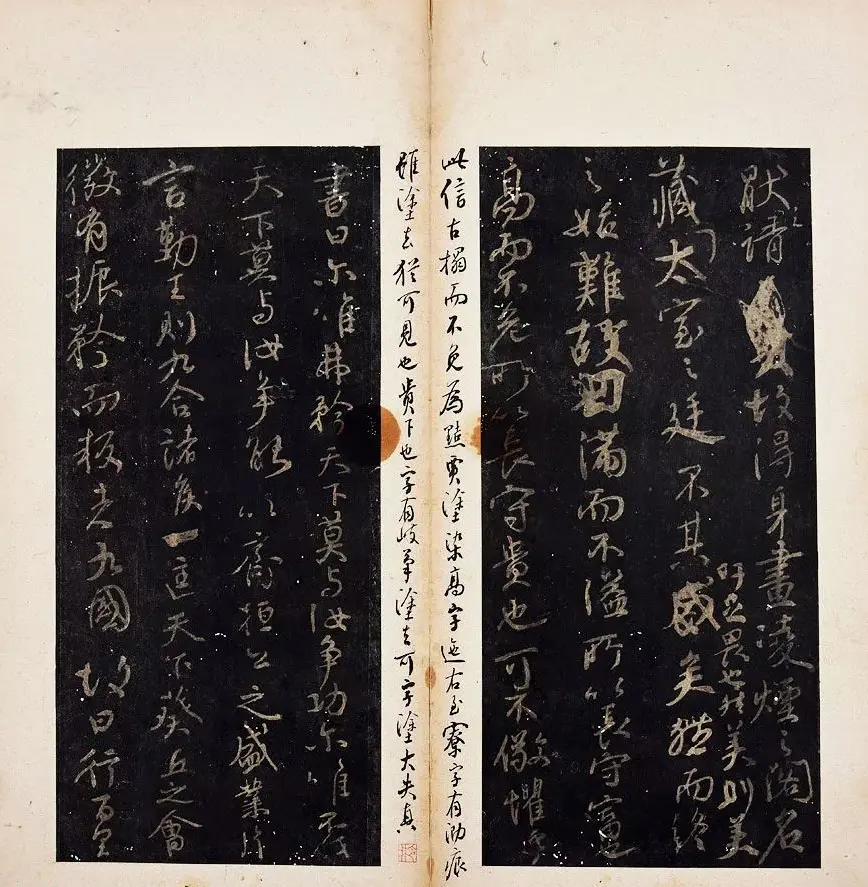 厭之請故得身畫凌煙之閣名
吁足畏也然美則美
藏太室之廷不其盛矣然而終
之始難故曰滿而不溢所以長守富也
高而不危所以長守貴也可不儆懼乎
此信古搨而不免為黠賈塗染高字迤右至寮字有泐痕
雖塗去猶可見也貴下也字有歧筆塗去可字塗大失真
書曰尔唯弗矜天下莫与汝争功尔唯不伐
天下莫与汝争能以齊桓公之盛業片
言勤王則九合諸侯一匡天下葵丘之會
微有振矜而叛者九國故曰行百里